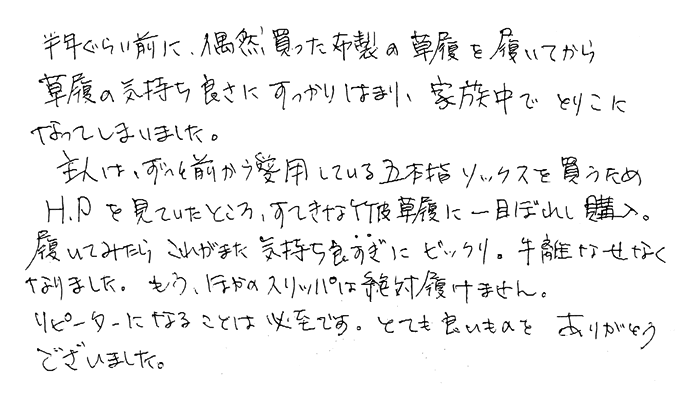 半年ぐらい前に、偶然買った布製の草履を履いてから
草履の気持ち良さにすっかりはまり、家族中でとりこに
なってしまいました。
主人は、ずっと前から愛用している五本指ソックスを買うため
H.Pを見ていたところ、すてきな竹皮草履に一目ぼれし購入。
履いてみたらこれがまた気持ち良すぎにビックリ。手離なせなく
なりました。もう、ほかのスリッパは絶対履けません。
リピーターになることは必至です。とても良いものをありがとう
ございました。